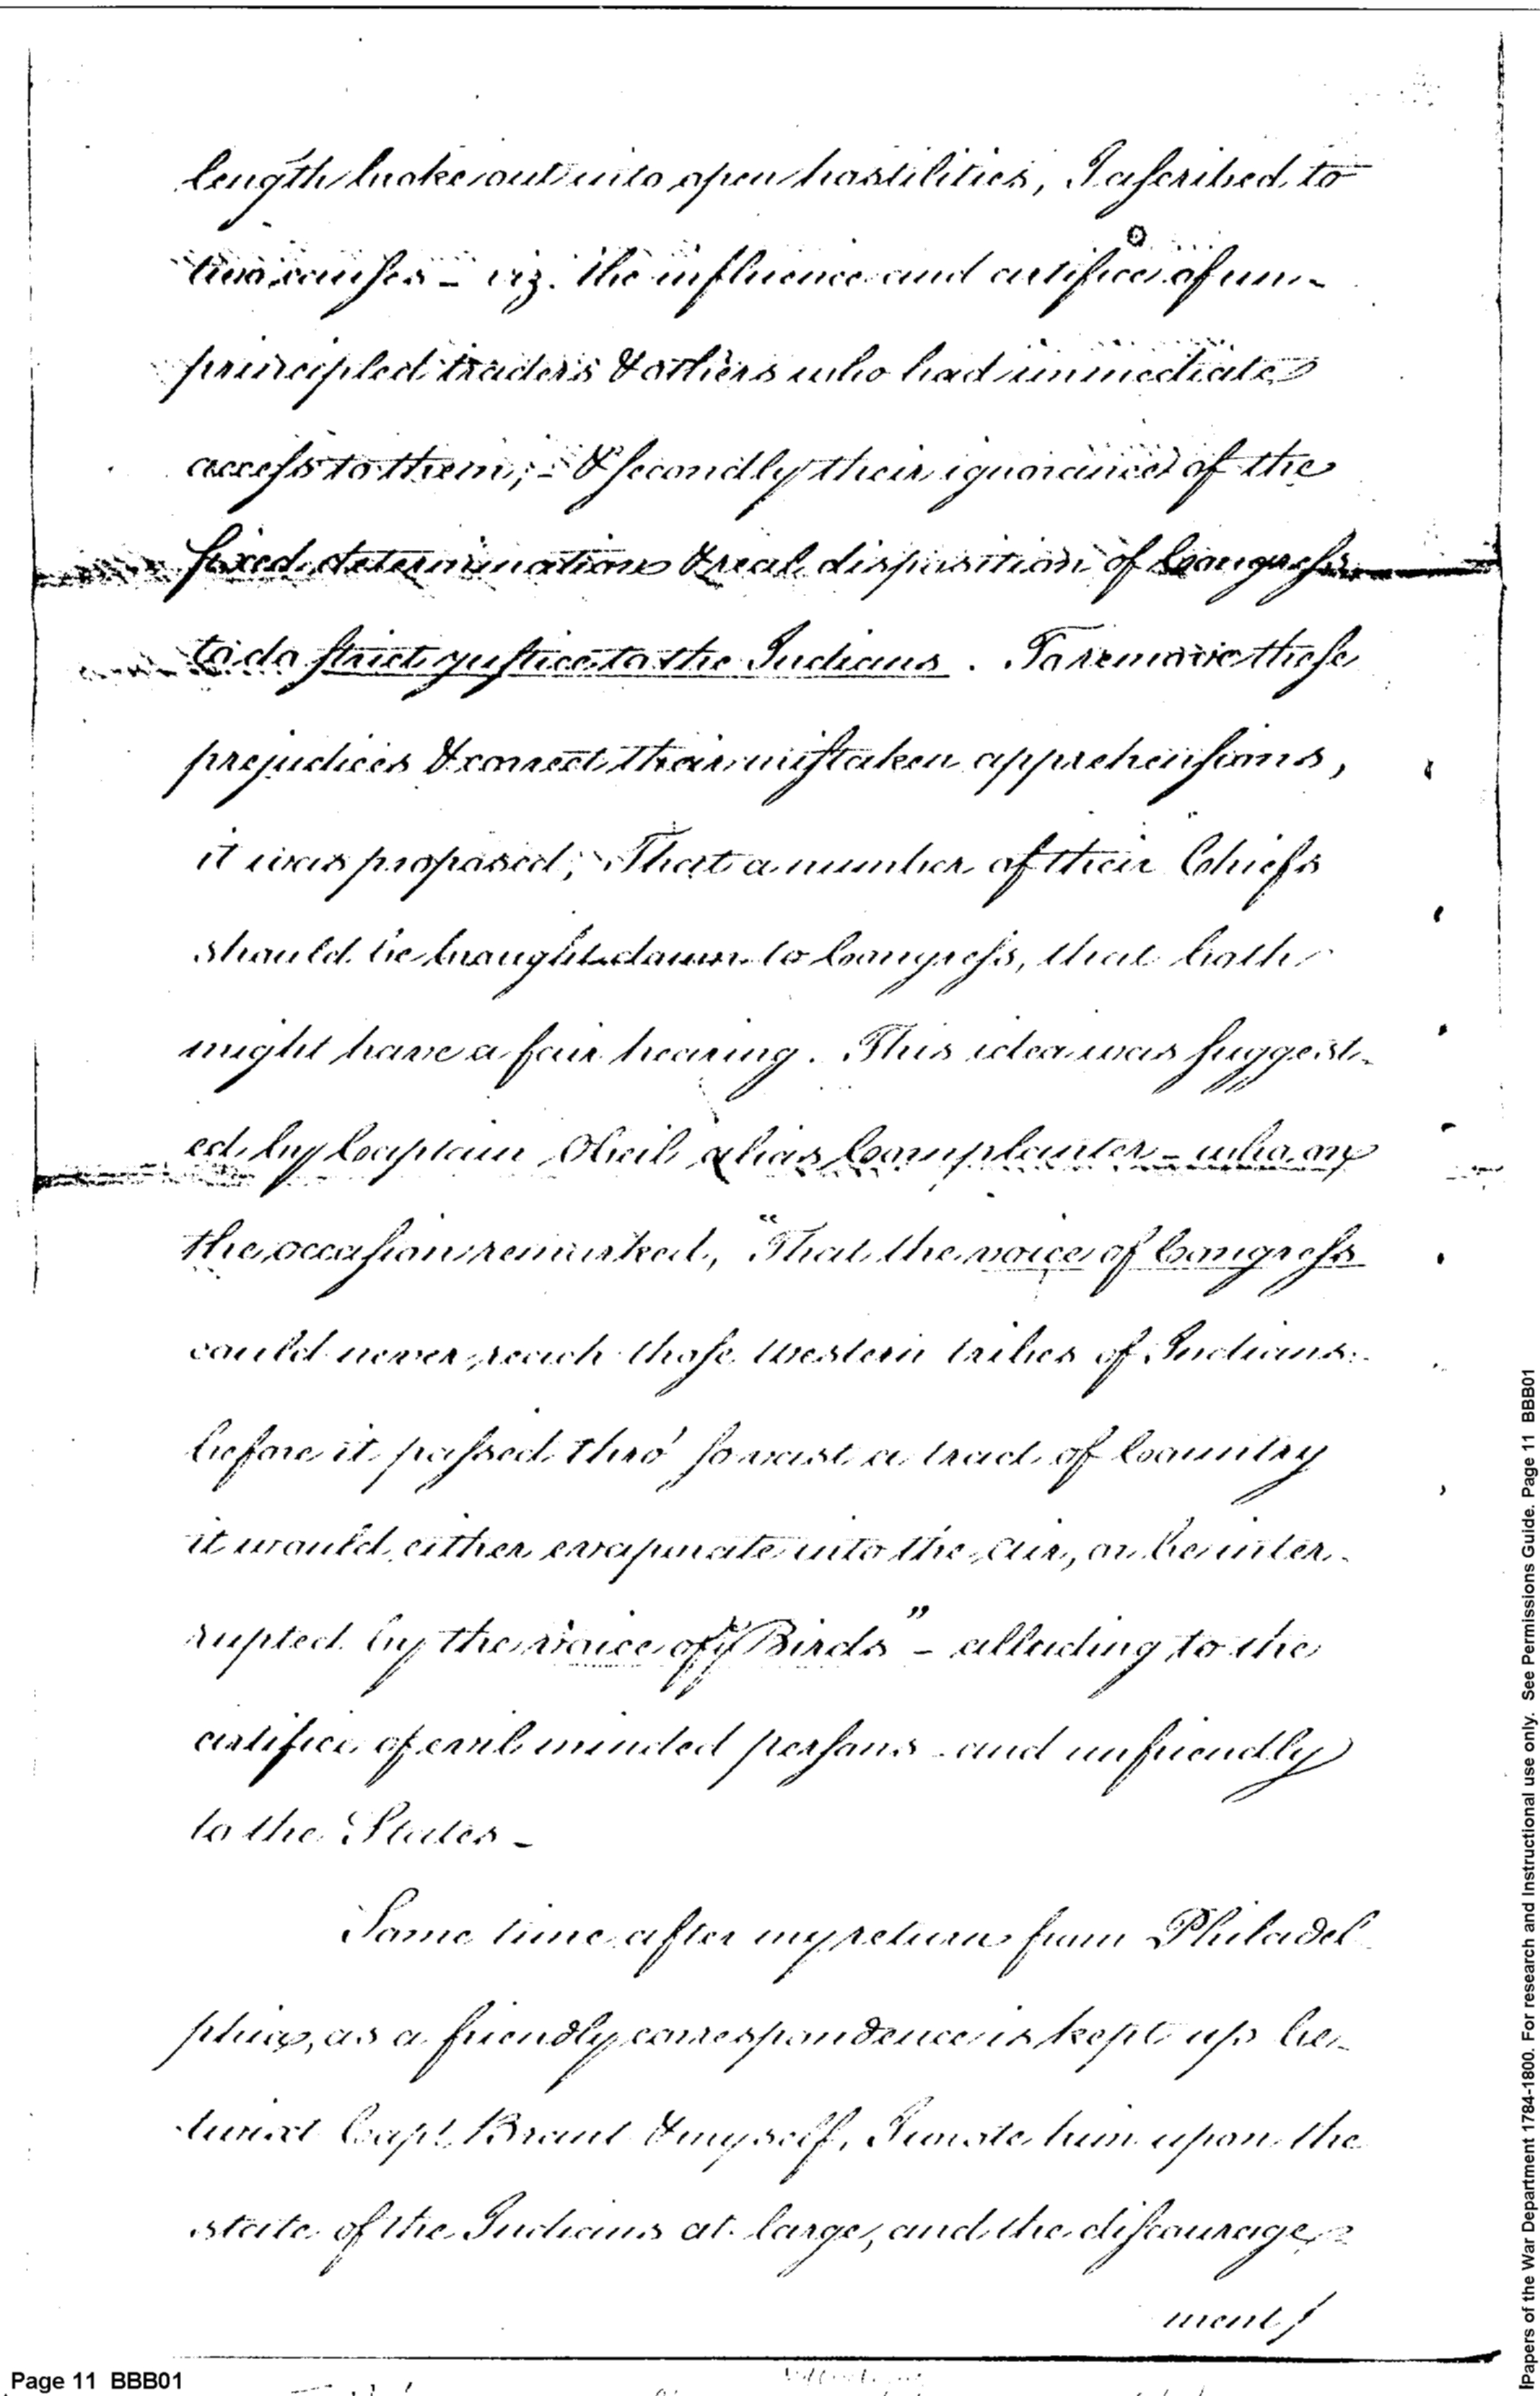 length broke out into open hostilities, I ascribed to
two causes – viz. the influence and artifice of un-
principled traders & others who had immediate
access to them; – & secondly their ignorance of the
fixed determination & real disposition of Congress
to do strict justice to the Indians. To remove these
prejudices & correct their mistaken apprehensions,
it was proposed, That a number of their Chiefs
should be brought down to Congress, that both
might have a fair hearing. This idea was suggest-
ed by Captain Obeil alias Cornplanter – who on
the occasion remarked, "That the voice of Congress
could never reach those western tribes of Indians.
before it passed thro' so vast a tract of Country
it would either evaporate into the air, or be inter-
rupted by the voice of ye Birds" – alluding to the
artifice of evil minded persons – and unfriendly
to the States –
Some time after my return from Philadel
phia, as a friendly correspondence is kept up be-
twixt Capt. Brant & myself, I wrote him upon the
state of the Indians at large, and the discourage-
ment/
Page 11 BBB01
Papers of the War Department 1784-1800. For research and Instructional use only. See Permissions Guide. Page 11 BBB01